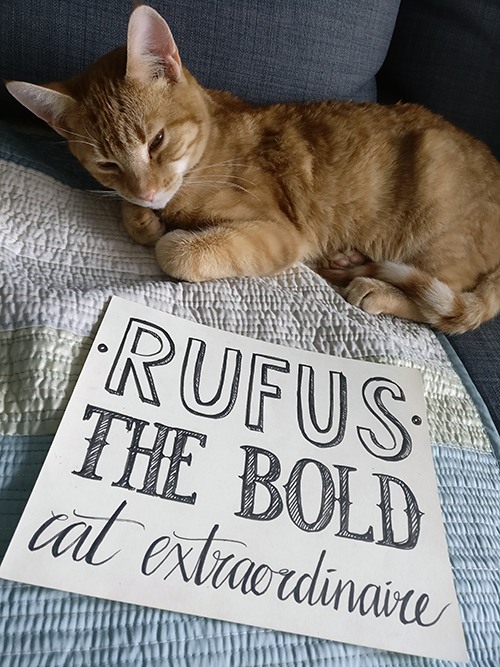 RUFUS
THE BOLD
cat extraordinaire